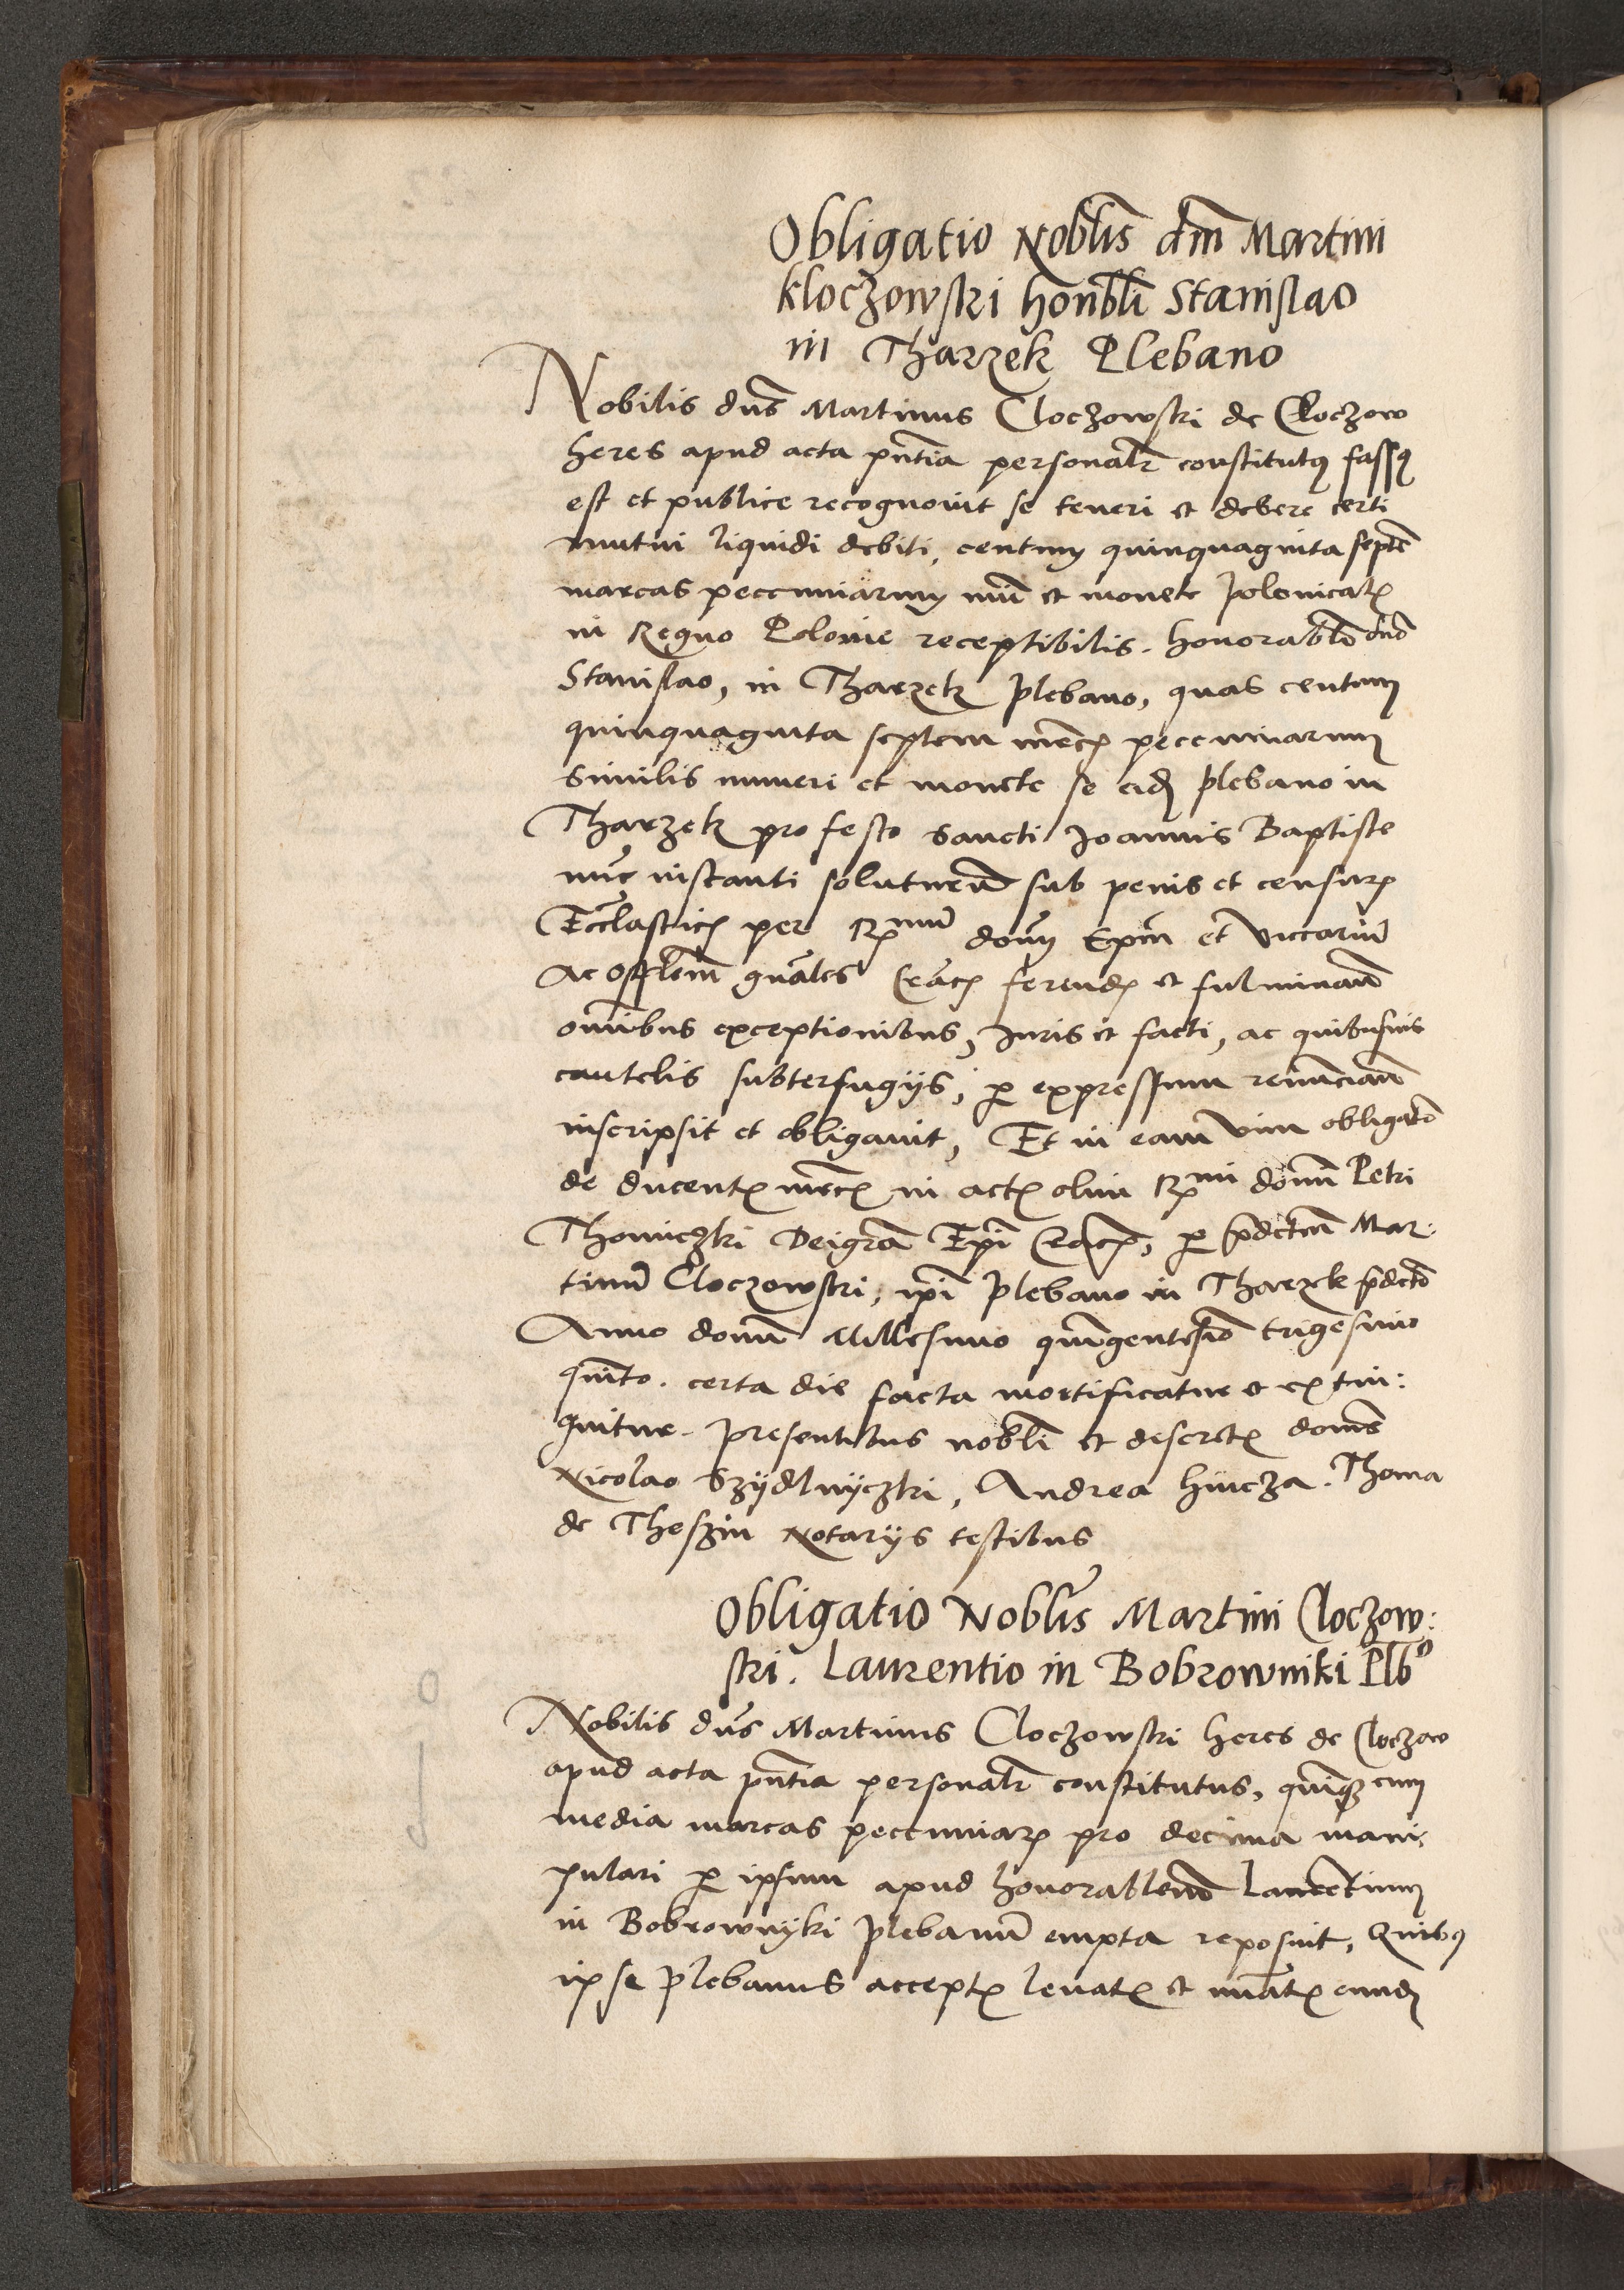 Obligatio Nobĺis dńi Martini
kloczowski honbĺi Stanislao
in Tharzek Plebano
Nobilis dńs Martinus Cloczowski de Cloczow
heres apud acta pñtia personalr̃ constitutꝰ fassꝰ
est et publice recognouit se teneri et debere certi
mutui liquidi debiti, centum quinquaginta septē
marcas peccuniarum nũi et monete polonicalꝭ
in Regno Polonie receptibilis. honorabĺi dńo
Stanislao, in Tharzek plebano, quas centum
quinquaginta septem mrcꝭ peccuniarum
similis numeri et monete se eidꝫ plebano in
Tharzek pro festo sancti Joannis Baptiste
nũc instanti soluturũ sub penis et censurꝭ
Eccĺasticꝭ per R̃mum doñm Ep̃m et viccariũ
ac offĺem gñales Cracꝭ ferendꝭ et fulminañ
omĩbus exceptionibus, Juris et facti, ac quibusuis
cautelis subterfugijs, ꝑ expressum renuncian̄
inscripsit et obligauit, Et in eam vim obligatō
de ducentꝭ mrcꝭ in actꝭ olim R̃mi domĩ Petri
Thomiczki Dei gr̃a Ep̃i Cracꝭ, ꝑ p̄dictum Mar:
tinũ Cloczowski, ip̃i plebano in Tharzek p̄dcto
Anno domĩ Millesimo quĩgentesio trigesimo
quĩto. certa die facta mortificatur et extin:
guitur. presentibus nobĺi et discretꝭ domĩs
Nicolao Szÿdlowÿczki, Andrea hincza. Thoma
de Theszin Notarijs testibus
Obligatio Nobĺis Martini Cloczow:
ski. Laurentio in Bobrowniki Plb̃o
Nobilis dńs Martinus Cloczowski heres de Cloczow
apud acta pñtia personalr̃ constitutus, quĩqꝫ cum
media marcas peccuniarꝭ pro decima mani:
pulari ꝑ ipsum apud honorabilem̃ Laurentium
in Bobrownÿki plebanũ empta reposuit, Quibꝰ
ipse plebanus acceptꝭ leuatꝭ et nũatꝭ eundꝫ